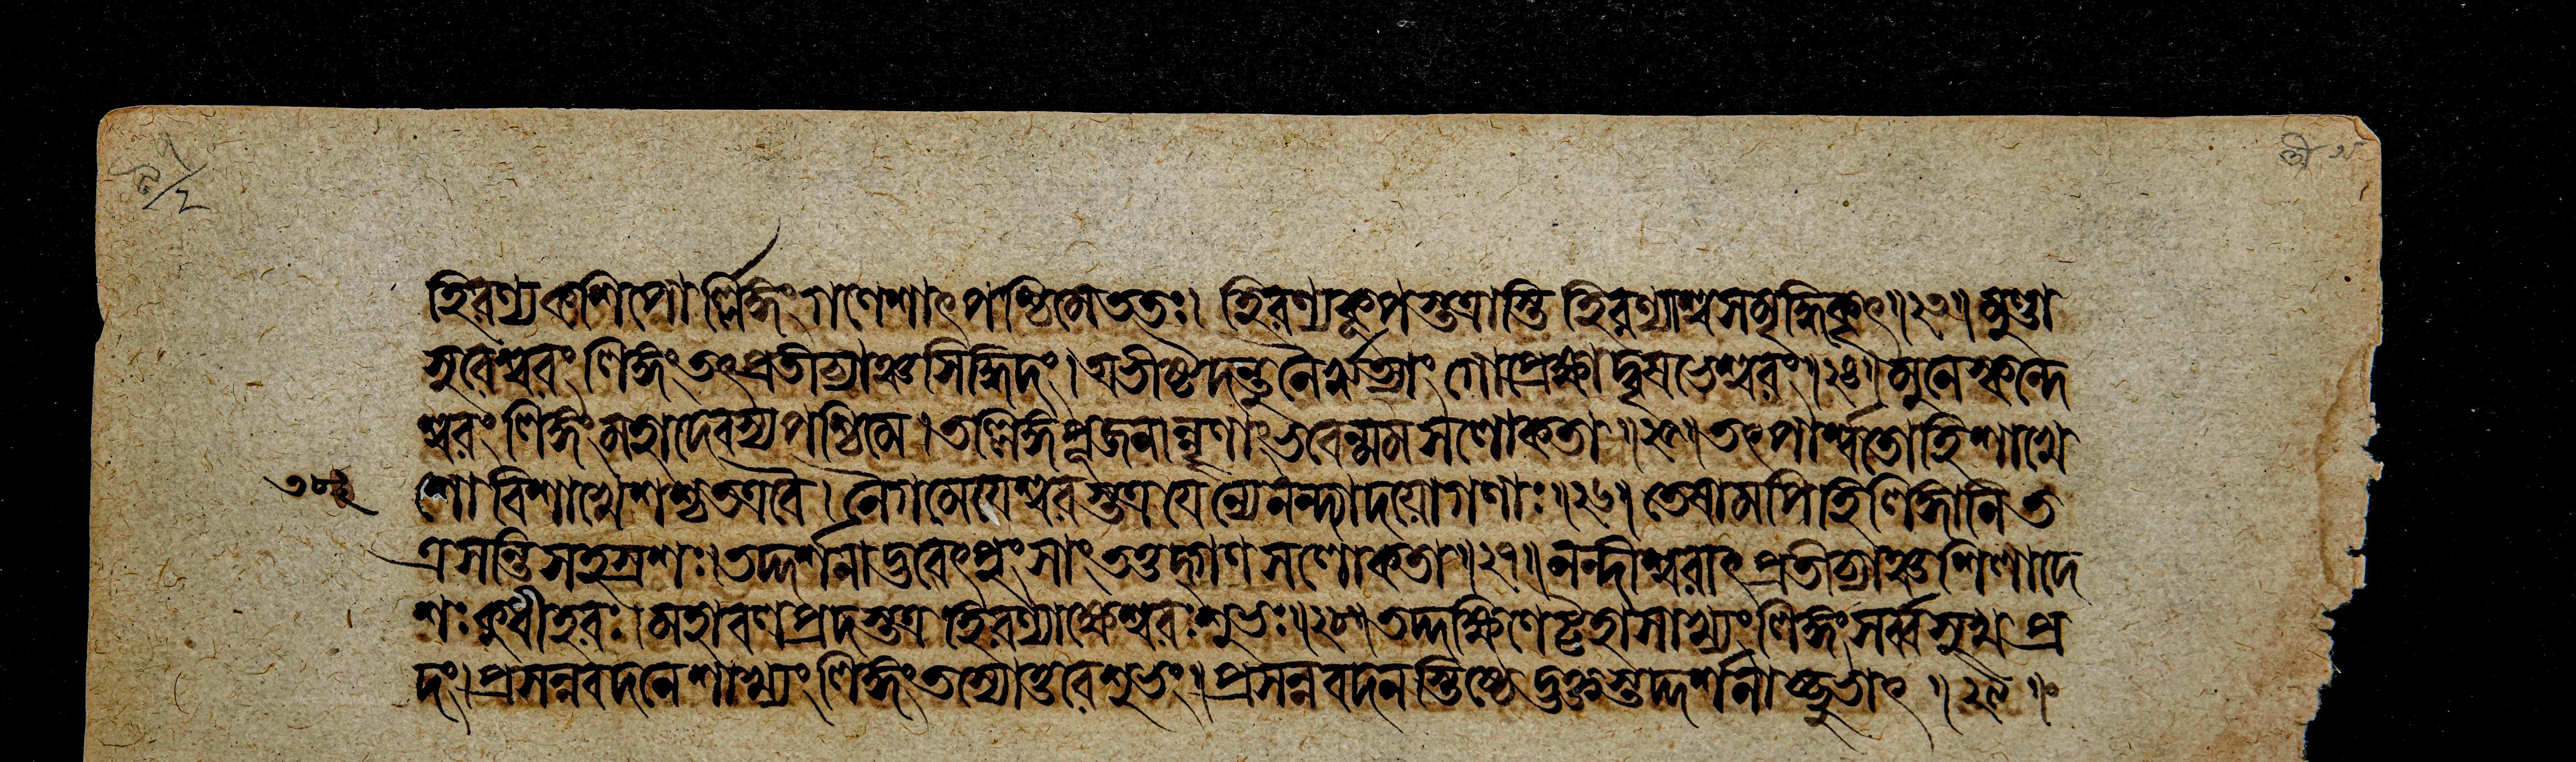 হিরণ্যকশিপোর্লিঙ্গং গণেশাৎ পশ্চিমে ততঃ। হিরণ্যকূপস্তত্রাস্তি হিরণ্যাশ্বসমৃদ্ধিকৃৎ॥২৩॥ মুণ্ডা
সুরেশ্বরং লিঙ্গং তৎপ্রতীচ্যাঞ্চ সিদ্ধিদং। অভীষ্টদন্তু নৈরৃত্যাং গোপ্রেক্ষাদ্বৃষভেশ্বরং॥২৪॥ মুনে স্কন্দে
শ্বরং লিঙ্গং মহাদেবস্য পশ্চিমে। তল্লিঙ্গপূজনান্নৃণাং ভবেন্মম সলোকতা॥২৫॥ তৎপার্শ্বতো হি শাখে
শো বিশাখেশশ্চ তত্র বৈ। নৈগমেয়েশ্বরস্তত্র যেন্যে নন্দ্যাদয়ো গণাঃ॥২৬॥ তেষামপি হি লিঙ্গানি ত
ত্র সন্তি সহস্রশঃ। তদ্দর্শনাদ্ভবেৎ পুংসাং তত্তদ্গণসলোকতা॥২৭॥ নন্দীশ্বরাৎ প্রতীচ্যাঞ্চ শিলাদে
শঃ কুধীহরঃ। মহাবলপ্রদস্তত্র হিরণ্যাক্ষেশ্বরঃ শুভঃ॥২৮॥ তদ্দক্ষিণেট্টহাসাখ্যং লিঙ্গং সর্ব্বসুখপ্র
দং। প্রসন্নবদনেশাখ্যং লিঙ্গং তস্যোত্তরে শুভং। প্রসন্নবদনস্তিষ্ঠেদ্ভক্তস্তদ্দর্শনাচ্ছুভাৎ॥২৯॥